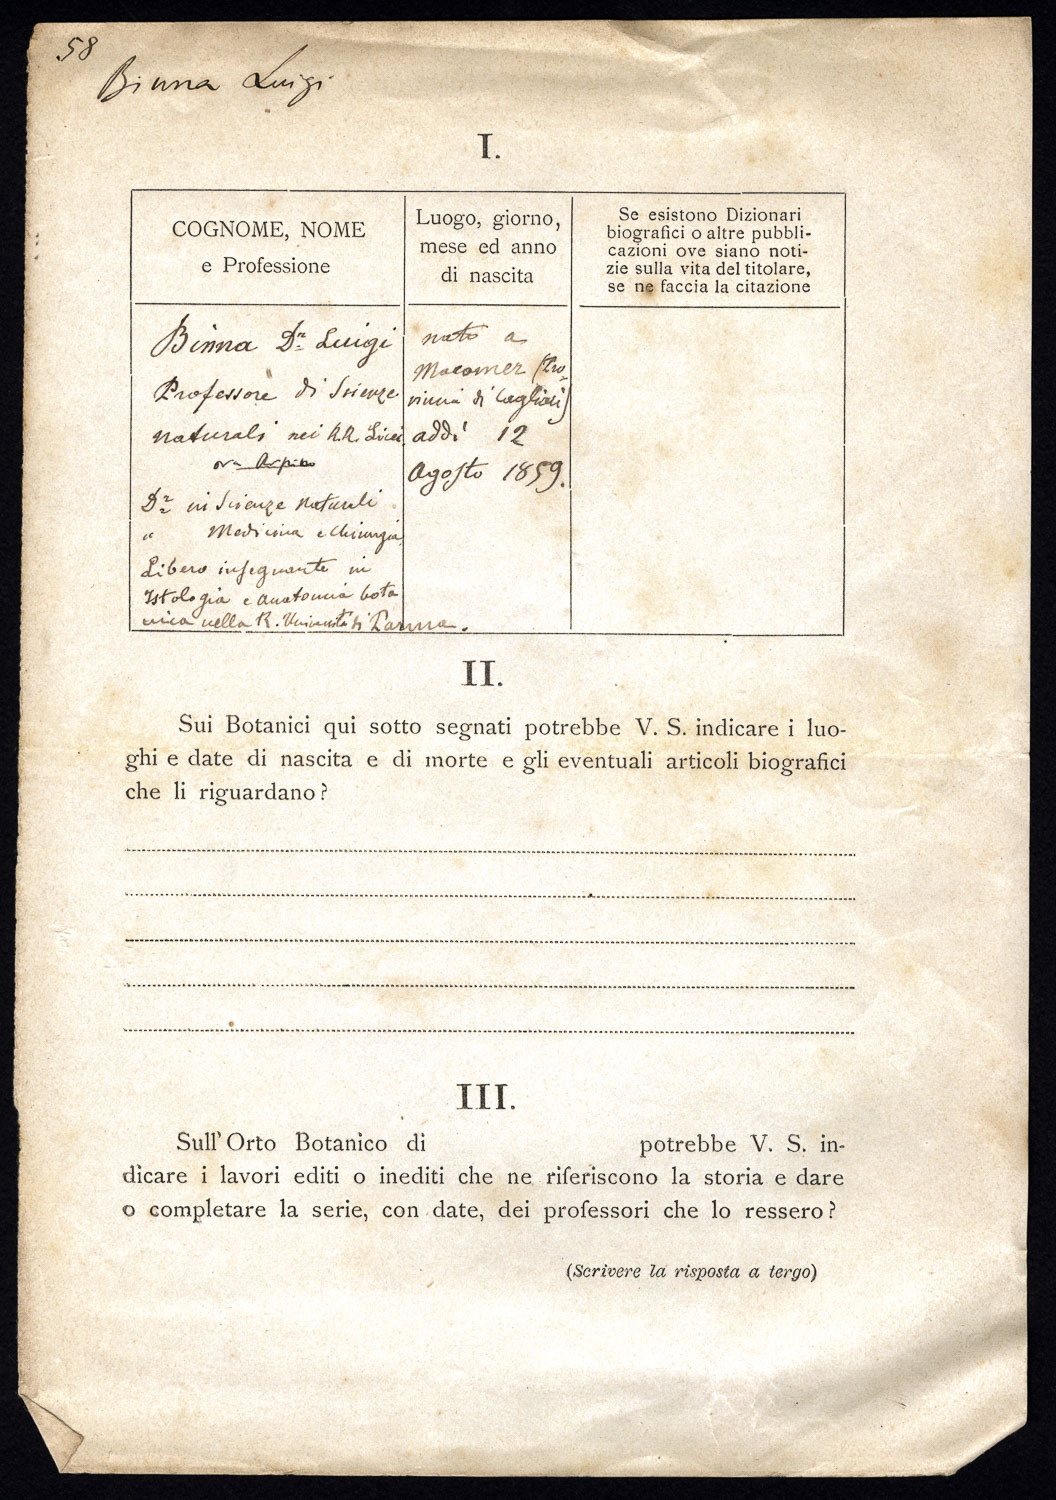 58
Binna Luigi
I.
COGNOME, NOME
e Professione
Luogo, giorno,
mese ed anno
di nascita
Se esistono Dizionari
biografici o altre pubbli-
cazioni ove siano noti-
zie sulla vita del titolare,
se ne faccia la citazione
Binna Dr Luigi
Professore di Scienze
naturali nei R.R. Licei
ora Arpino
Dr in Scienze Naturali
" Medicina e Chirurgia
Libero insegnante in
Istologia e anatomia bota
nica nella R. Università di Parma.
nato a
Macomer (Pro-
vincia di Cagliari)
addì 12
Agosto 1859.
II.
Sui Botanici qui sotto segnati potrebbe V. S. indicare i luo-
ghi e date di nascita e di morte e gli eventuali articoli biografici
che li riguardano?
III.
Sull'Orto Botanico di potrebbe V. S. in-
dicare i lavori editi o inediti che ne riferiscono la storia e dare
o completare la serie, con date, dei professori che lo ressero?
(Scrivere la risposta a tergo)